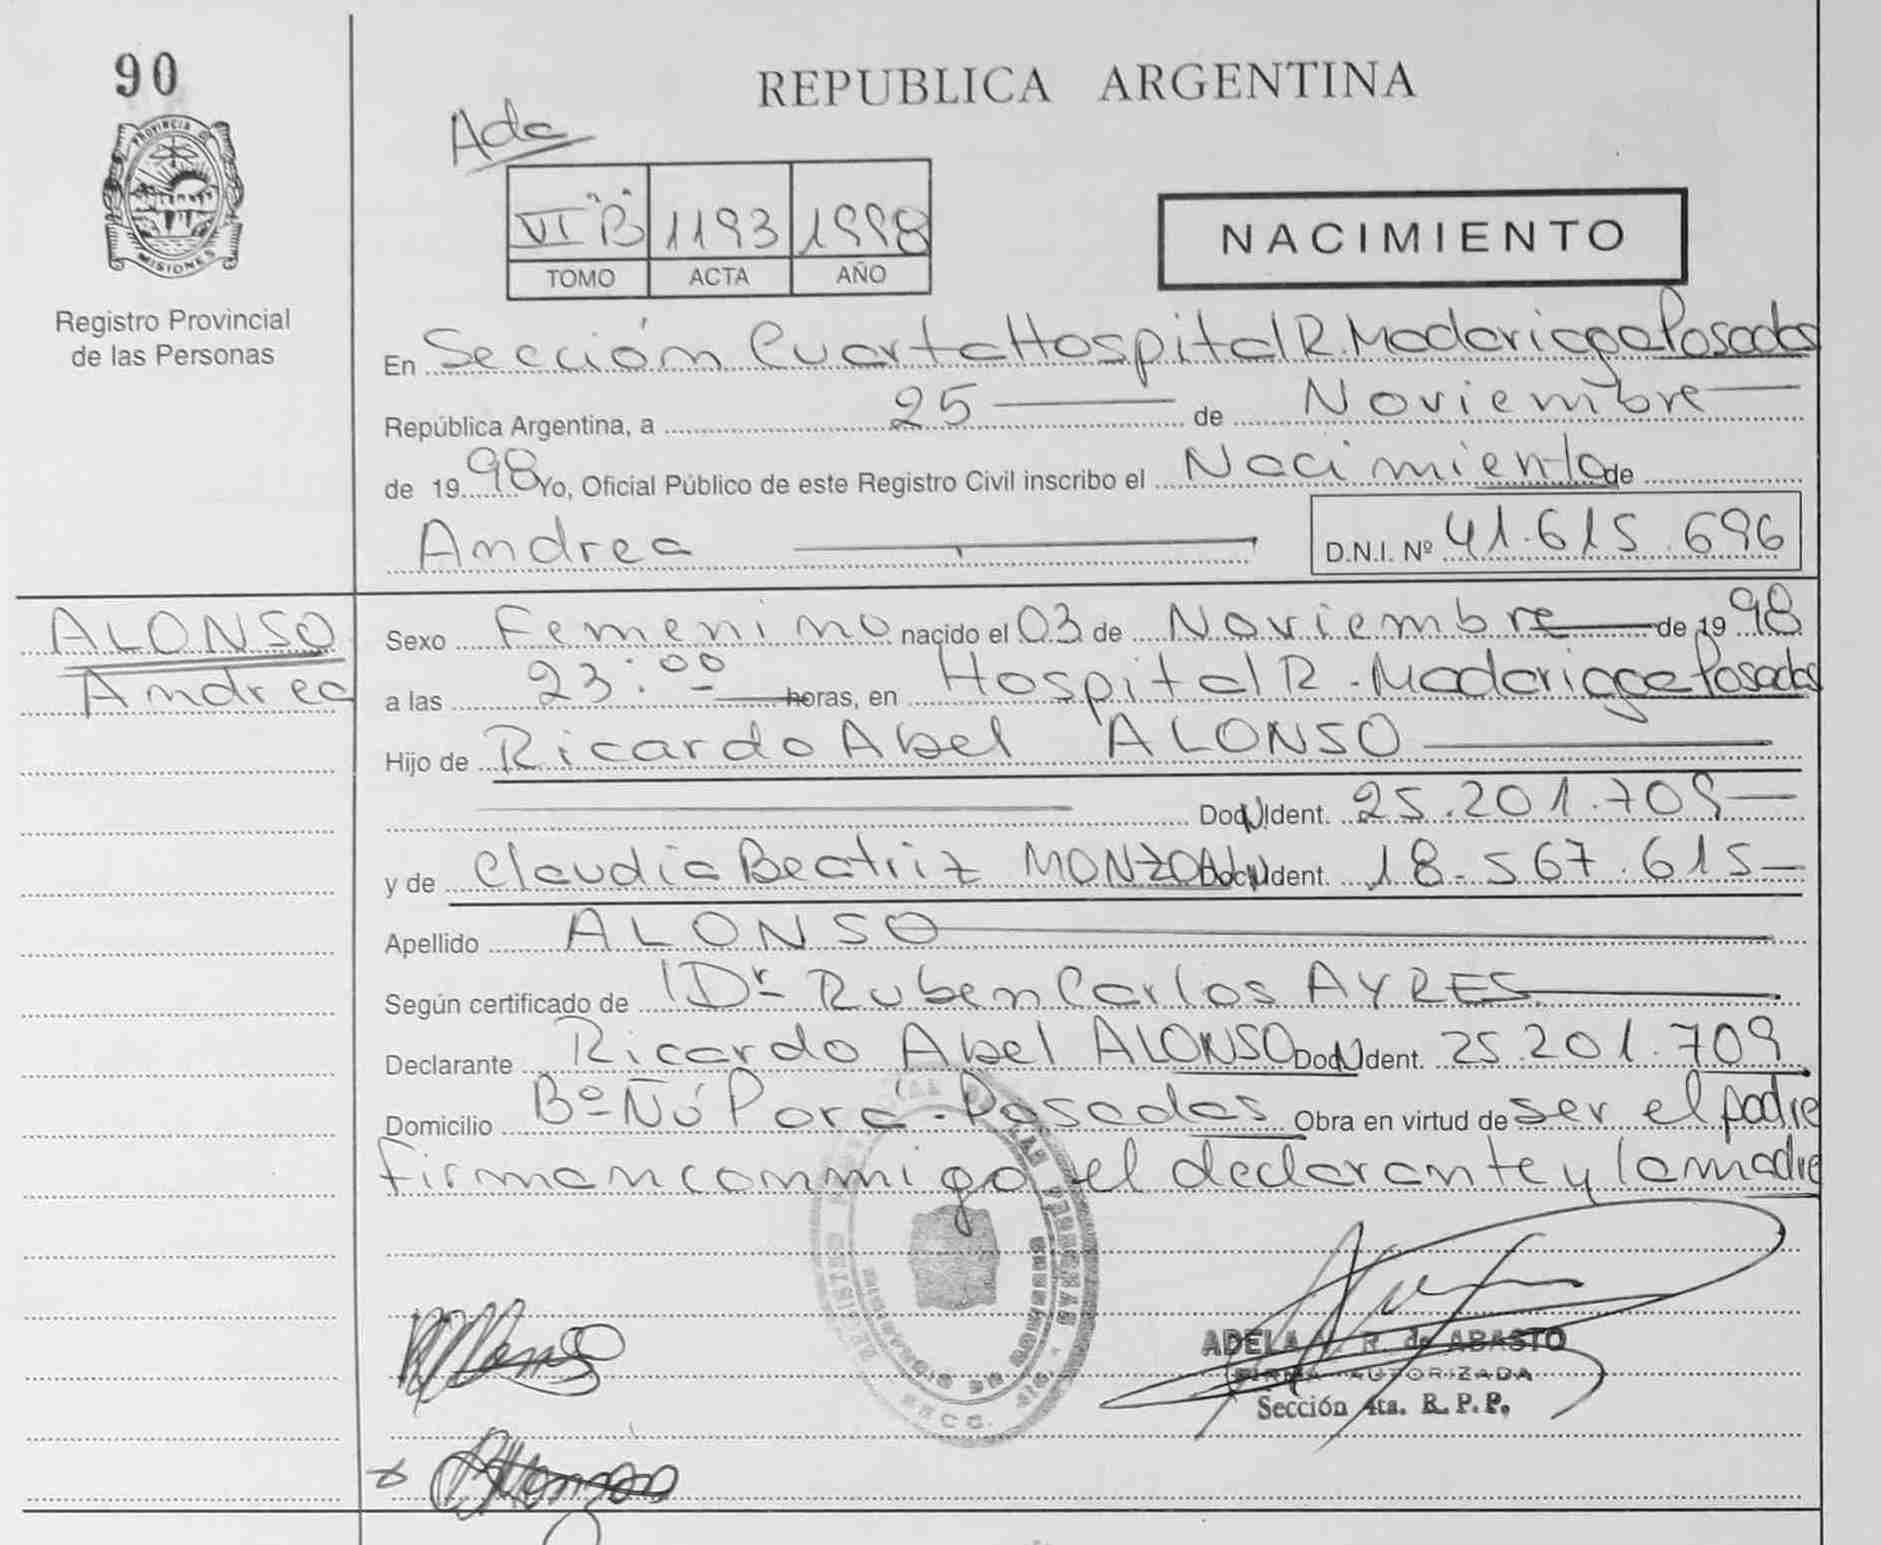 90
REPUBLICA ARGENTINA
PROVINCIA D
MISIONES
Registro Provincial
de las Personas
Ada
VI "B" 1193 1998
TOMO ACTA AÑO
NACIMIENTO
En Sección Cuarta Hospital R. Madariaga Posadas
República Argentina, a 25 de Noviembre
de 1998 Yo, Oficial Público de este Registro Civil inscribo el Nacimiento de
Andrea D.N.I. Nº 41.615.696
ALONSO
Andrea
Sexo Femenino nacido el 03 de Noviembre de 1998
a las 23:00 horas, en Hospital R. Madariaga Posadas
Hijo de Ricardo Abel ALONSO
Doc. Ident. 25.201.709
y de Claudia Beatriz MONZON Doc. Ident. 18.567.615
Apellido ALONSO
Según certificado de Dr. Ruben Carlos AYRES
Declarante Ricardo Abel ALONSO Doc. Ident. 25.201.709
Domicilio Bº Ñú Porá - Posadas Obra en virtud de ser el padre
firman conmigo el declarante y la madre
ADELA R. de ABASTO
FIRMA AUTORIZADA
Sección 4ta. R. P. P.